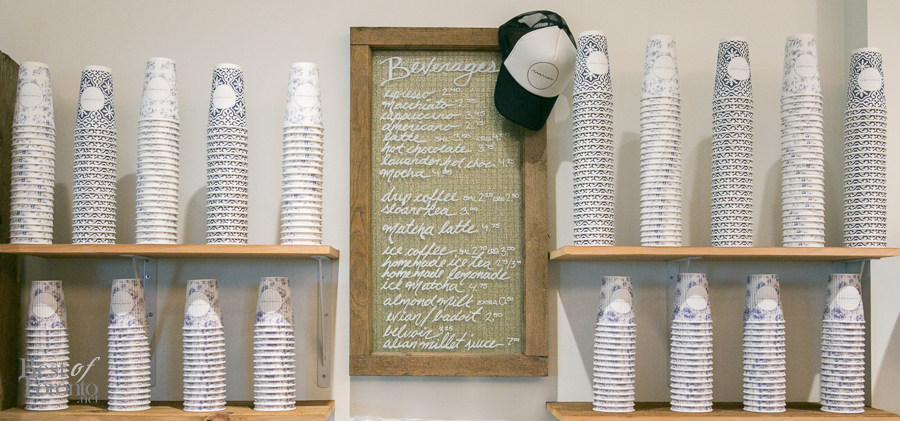 Beverages
espresso 2.40
macchiato 2.75
cappuccino 3.45
americano 2.90
latte
hot chocolate 3.75
lavender hot choco 4.25
mocha 4.25
drip coffee
sloane tea
matcha latte 4.75
ice coffee
homemade ice tea
homemade lemonade
ice matcha 4.75
almond milk EXTRA
evian/badoit 2.00
belvoir
alain millet juice
Best of
Toronto
.net